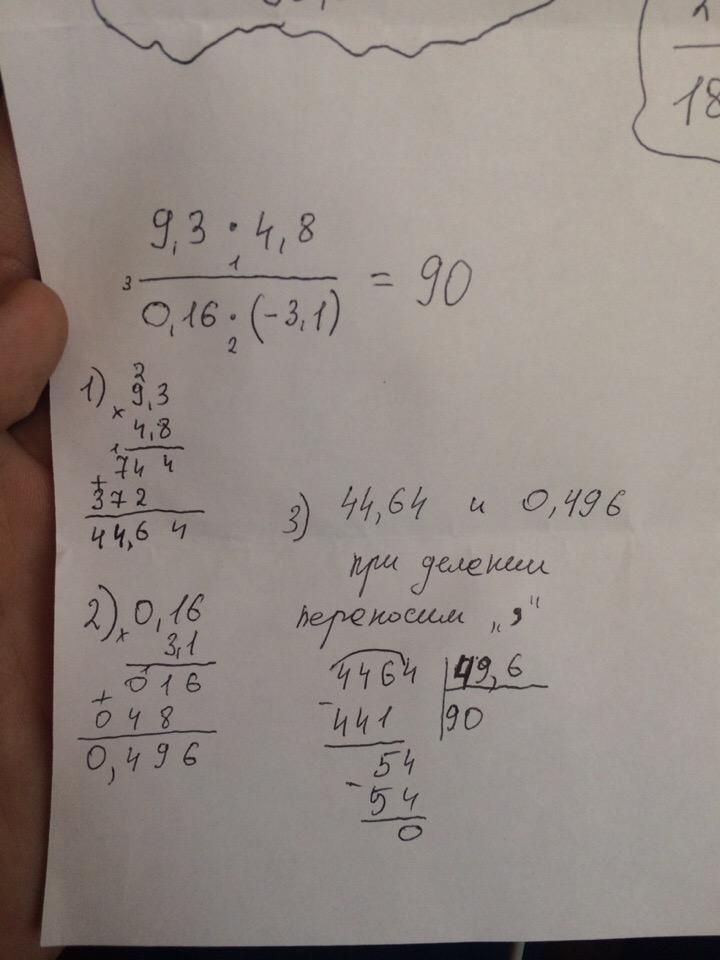 2
18
9,3 · 4,8
1
3 ――― = 90
0,16 · (-3,1)
2
1) 2
× 9,3
4,8
1
74 4
+
372
44,6 4
2) × 0,16
3,1
016
+
048
0,496
3) 44,64 и 0,496
при делении
переносим „,“
4464 | 49,6
- 441 | 90
54
- 54
0